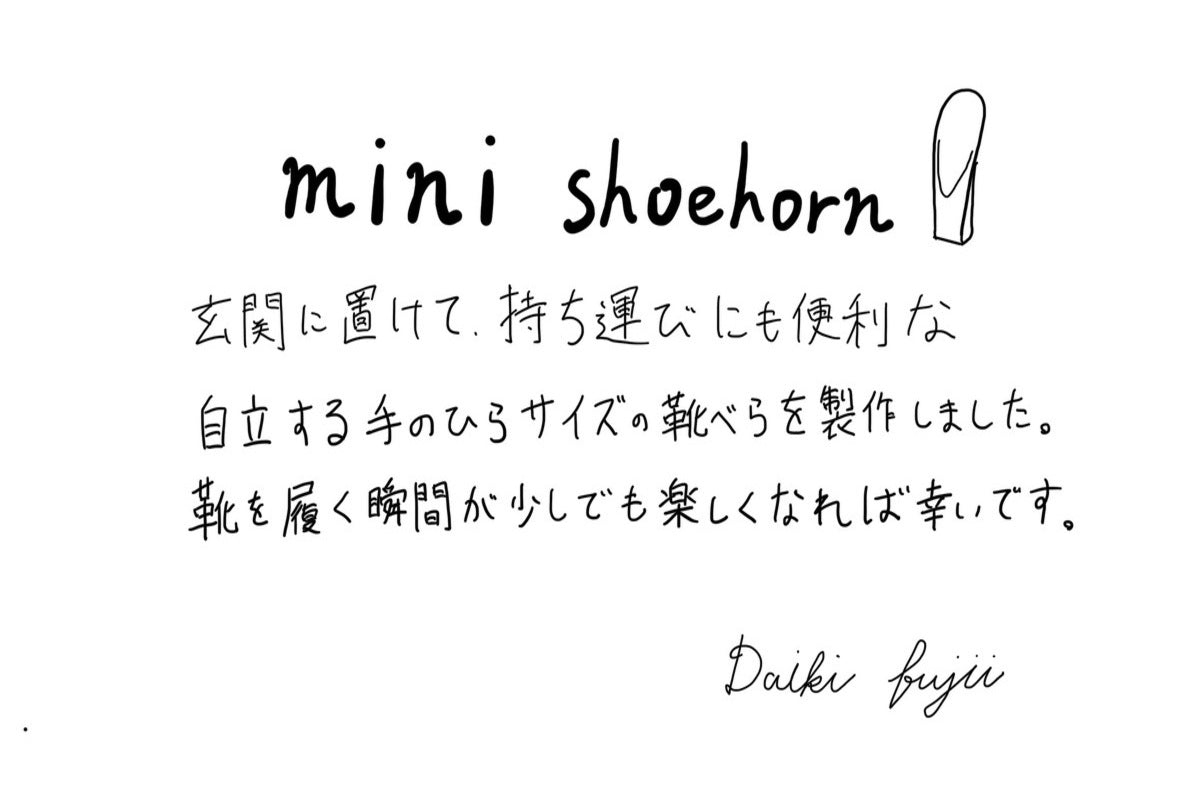 mini shoehorn
玄関に置けて、持ち運びにも便利な
自立する手のひらサイズの靴べらを製作しました。
靴を履く瞬間が少しでも楽しくなれば幸いです。
Daiki fujii